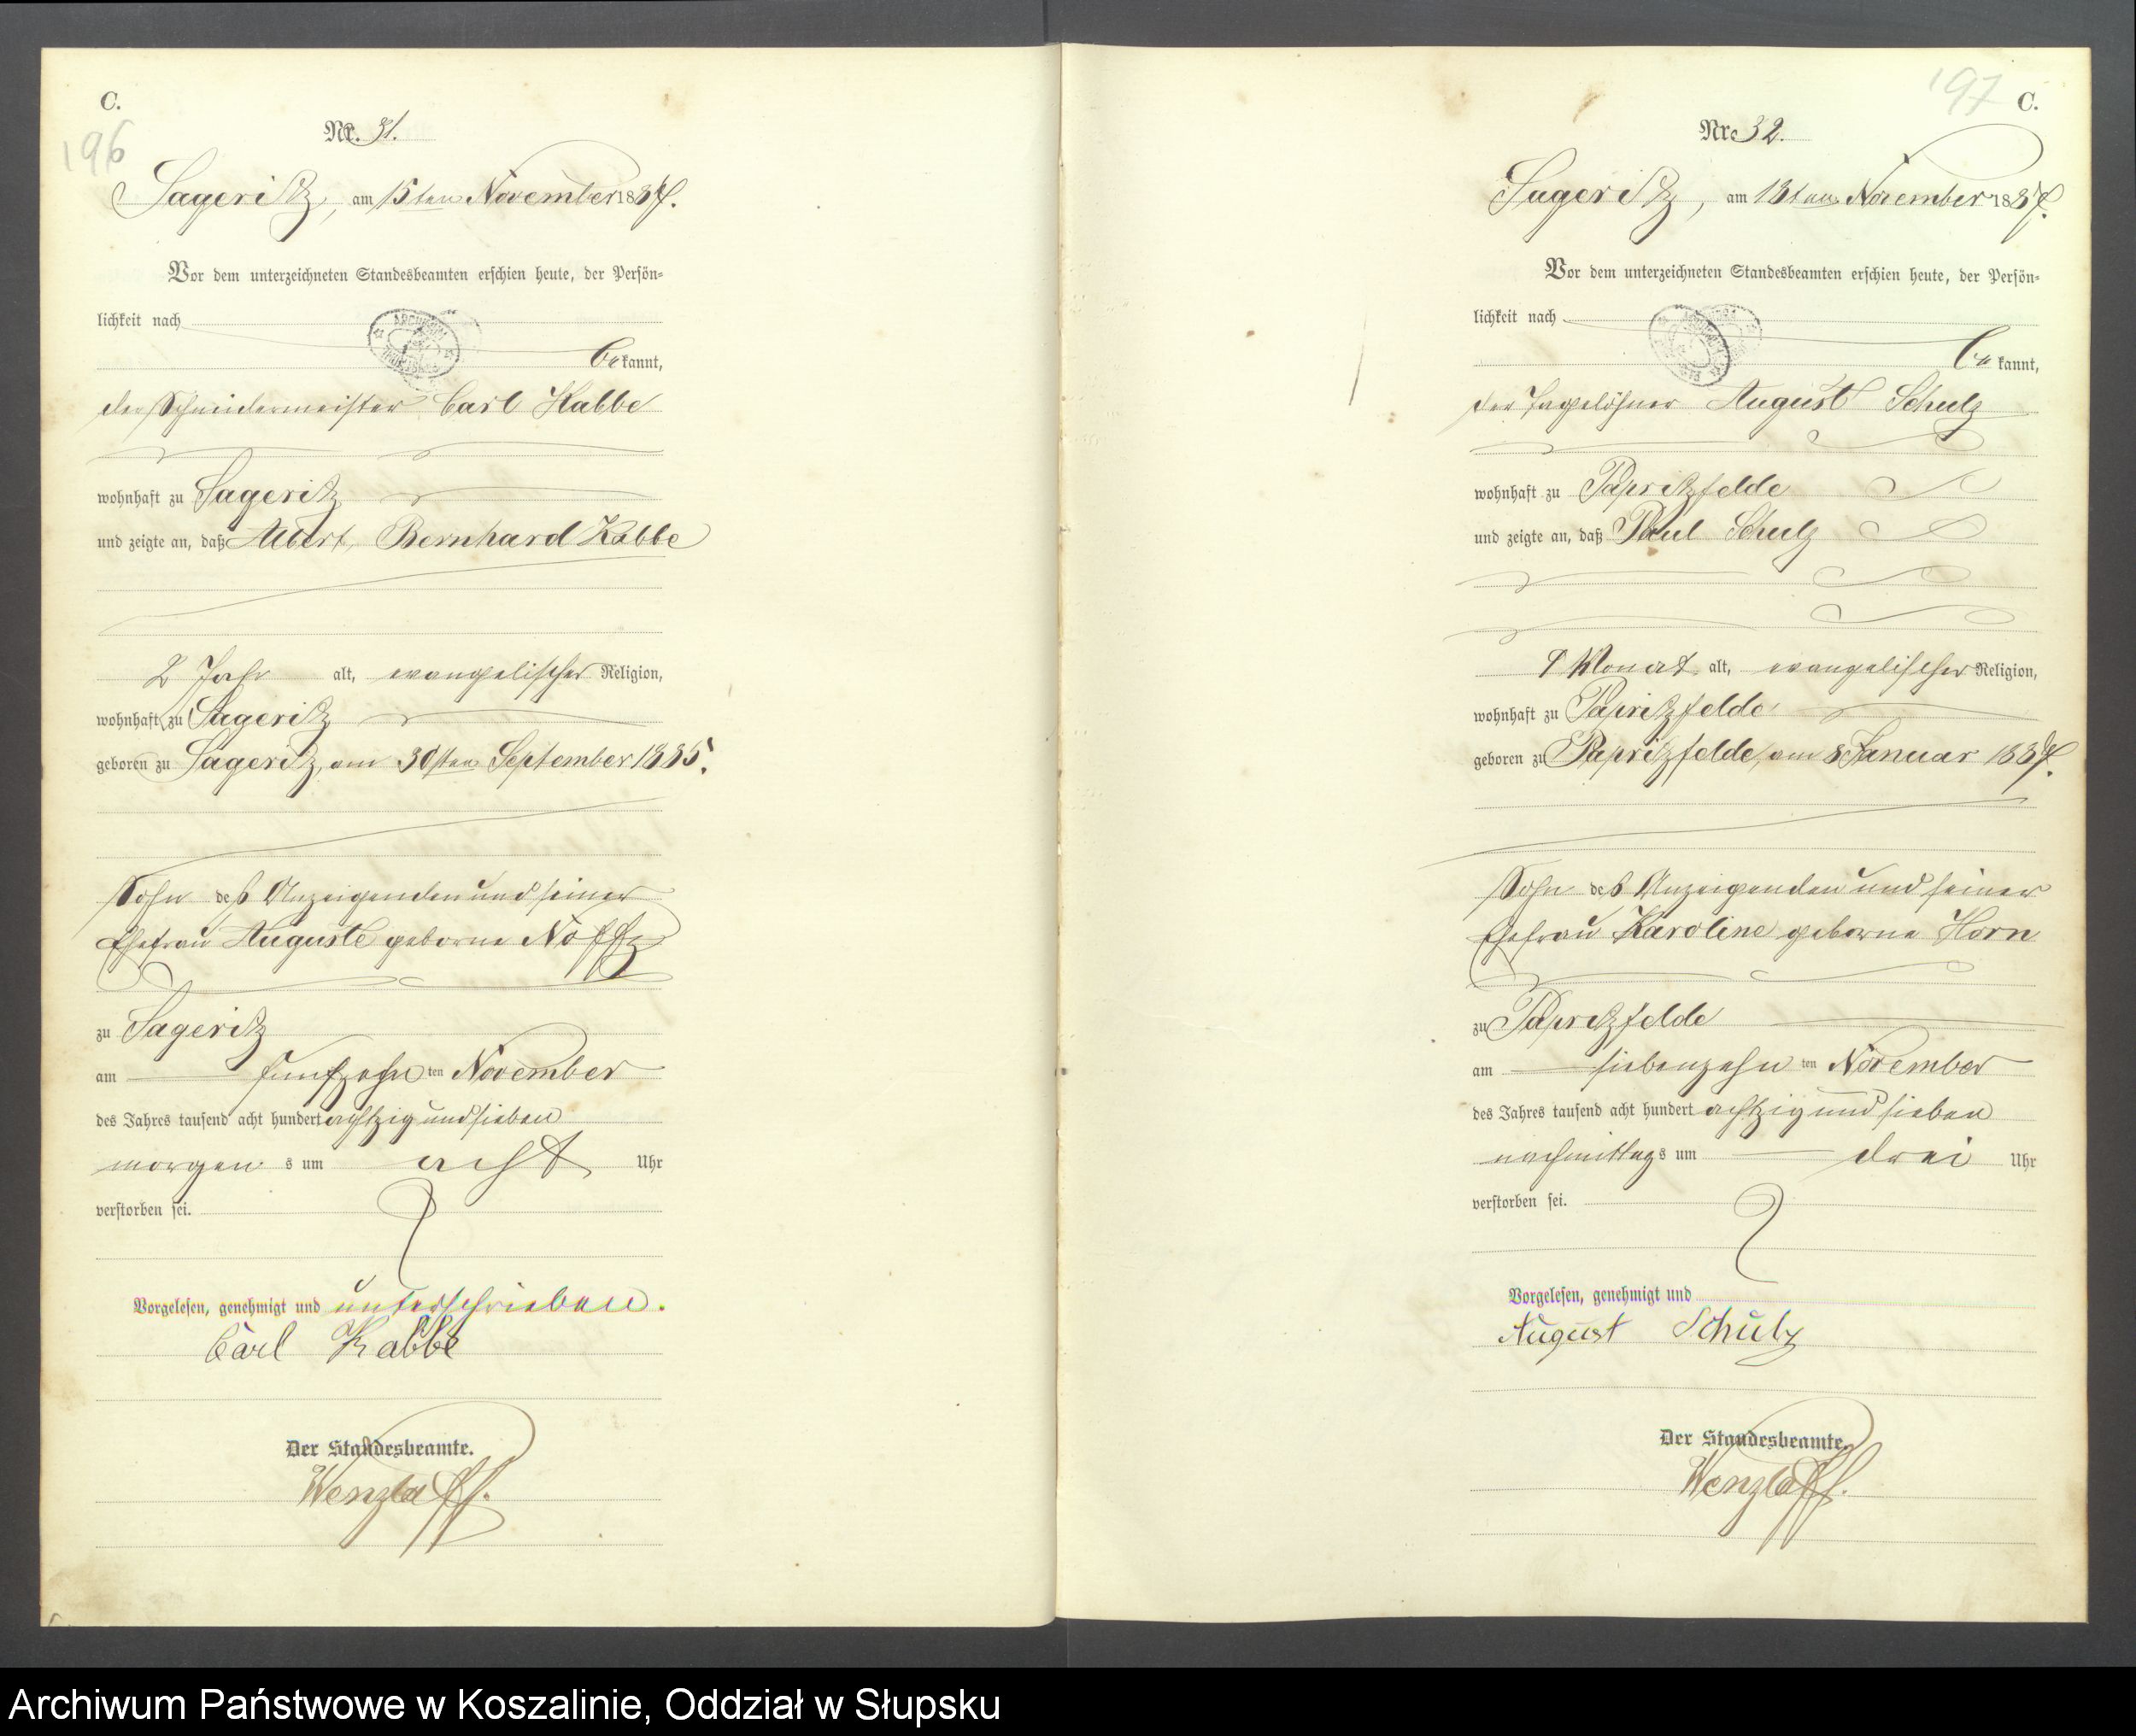 C.
196
Nr. 31.
Sageritz, am 15ten November 1887.
Vor dem unterzeichneten Standesbeamten erschien heute, der Persön-
lichkeit nach
bekannt,
der Schneidermeister Carl Kabbe
wohnhaft zu Sageritz
und zeigte an, daß Albert Bernhard Kabbe
2 Jahr alt, evangelischer Religion,
wohnhaft zu Sageritz
geboren zu Sageritz, am 30sten September 1885.
Sohn des Anzeigenden und seiner
Ehefrau Auguste geborne Nöffz
zu Sageritz
am fünfzehnten November
des Jahres tausend acht hundert achtzig und sieben
morgens um acht Uhr
verstorben sei.
Vorgelesen, genehmigt und unterschrieben.
Carl Kabbe
Der Standesbeamte.
Wenzlaff.
197
C.
Nr. 32.
Sageritz, am 18ten November 1887.
Vor dem unterzeichneten Standesbeamten erschien heute, der Persön-
lichkeit nach
bekannt,
der Tagelöhner August Schulz
wohnhaft zu Papritzfelde
und zeigte an, daß Paul Schulz
Monat alt, evangelischer Religion,
wohnhaft zu Papritzfelde
geboren zu Papritzfelde, am 8 Januar 1887.
Sohn des Anzeigenden und seiner
Ehefrau Karoline geborne Horn
zu Papritzfelde
am siebenzehnten November
des Jahres tausend acht hundert achtzig und sieben
nachmittags um drei Uhr
verstorben sei.
Vorgelesen, genehmigt und
August Schulz
Der Standesbeamte.
Wenzlaff.
Archiwum Państwowe w Koszalinie, Oddział w Słupsku